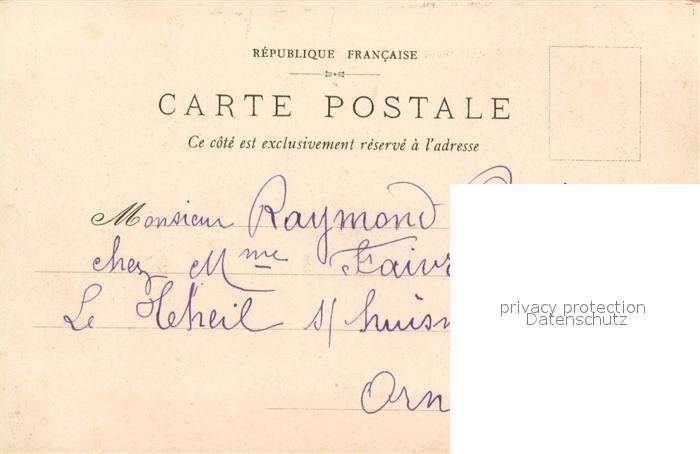 RÉPUBLIQUE FRANÇAISE
CARTE POSTALE
Ce côté est exclusivement réservé à l'adresse
Monsieur Raymond
chez Mme Faivr
Le Theil s/ huisn
Orn
privacy protection
Datenschutz